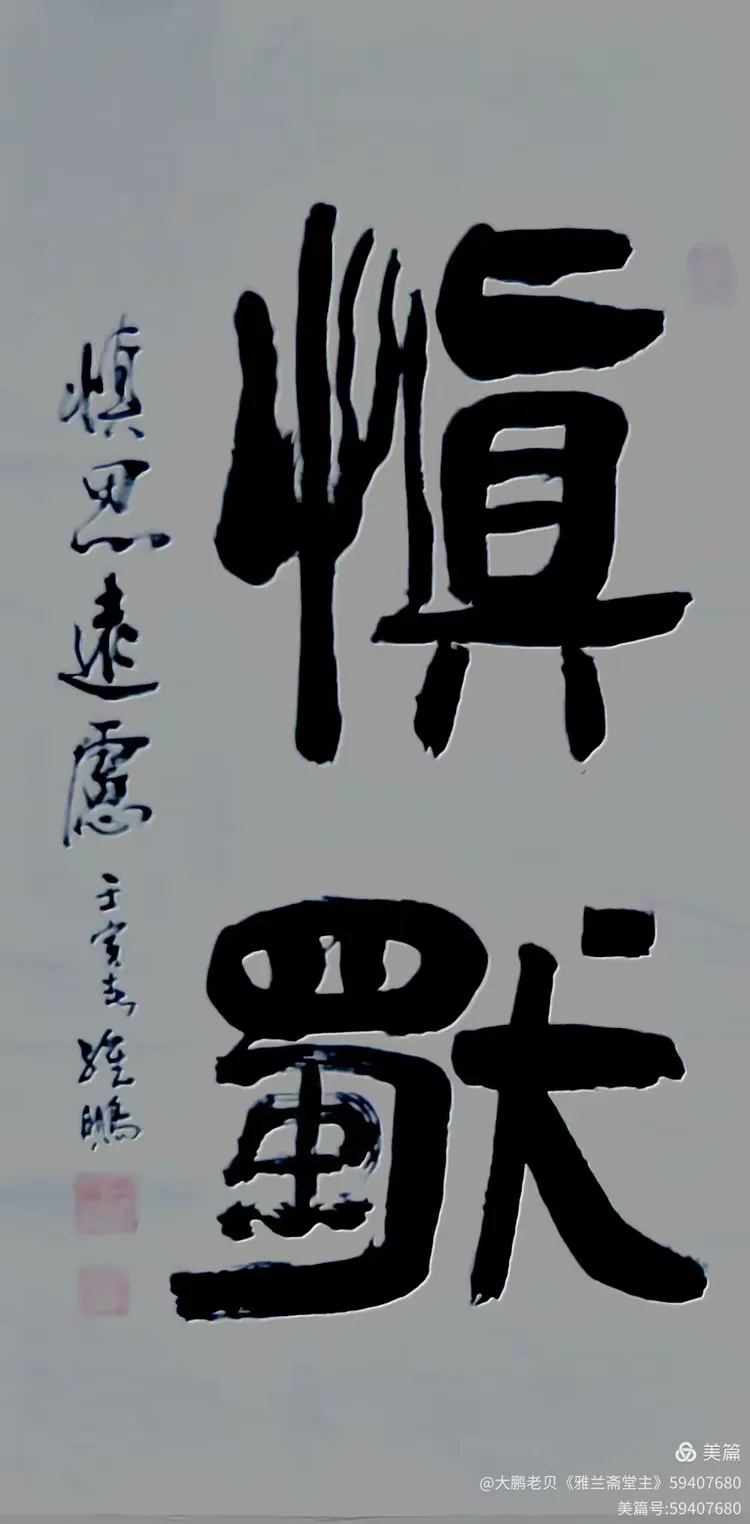 慎獨
慎思遠慮 壬寅春 鵬
美篇
@大鹏老贝《雅兰斋堂主》59407680
美篇号:59407680